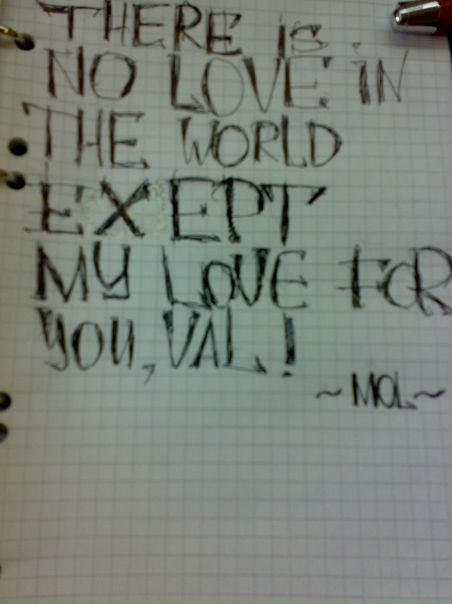 THERE IS
NO LOVE IN
THE WORLD
EXEPT
MY LOVE FOR
YOU, VAL!
~MOL~